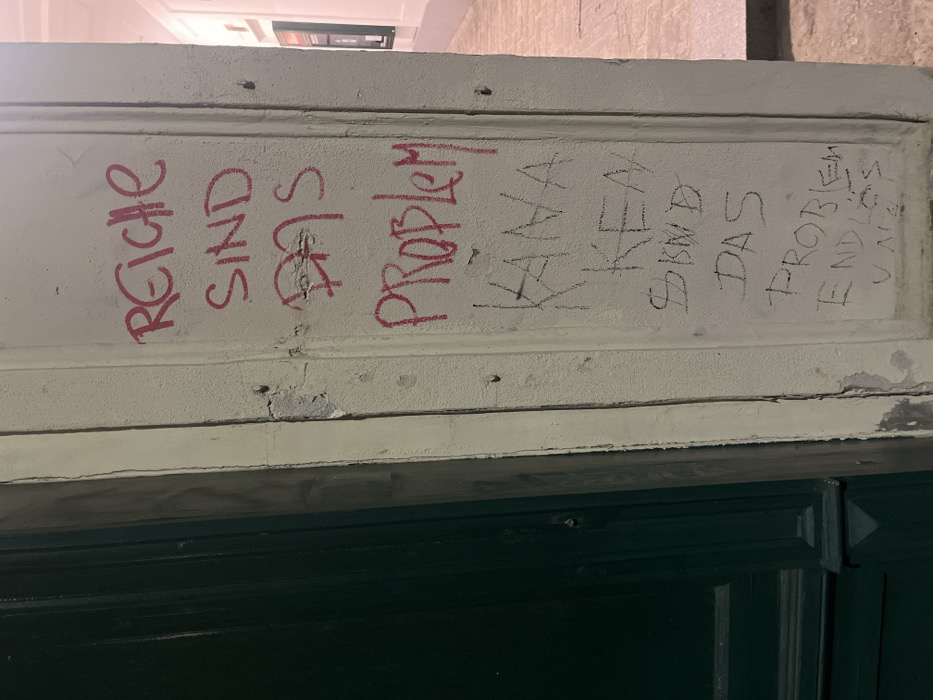 REICHE
SIND
DAS
PROBLEM
KANA
KEN
SIND
DAS
PROBLEM
END